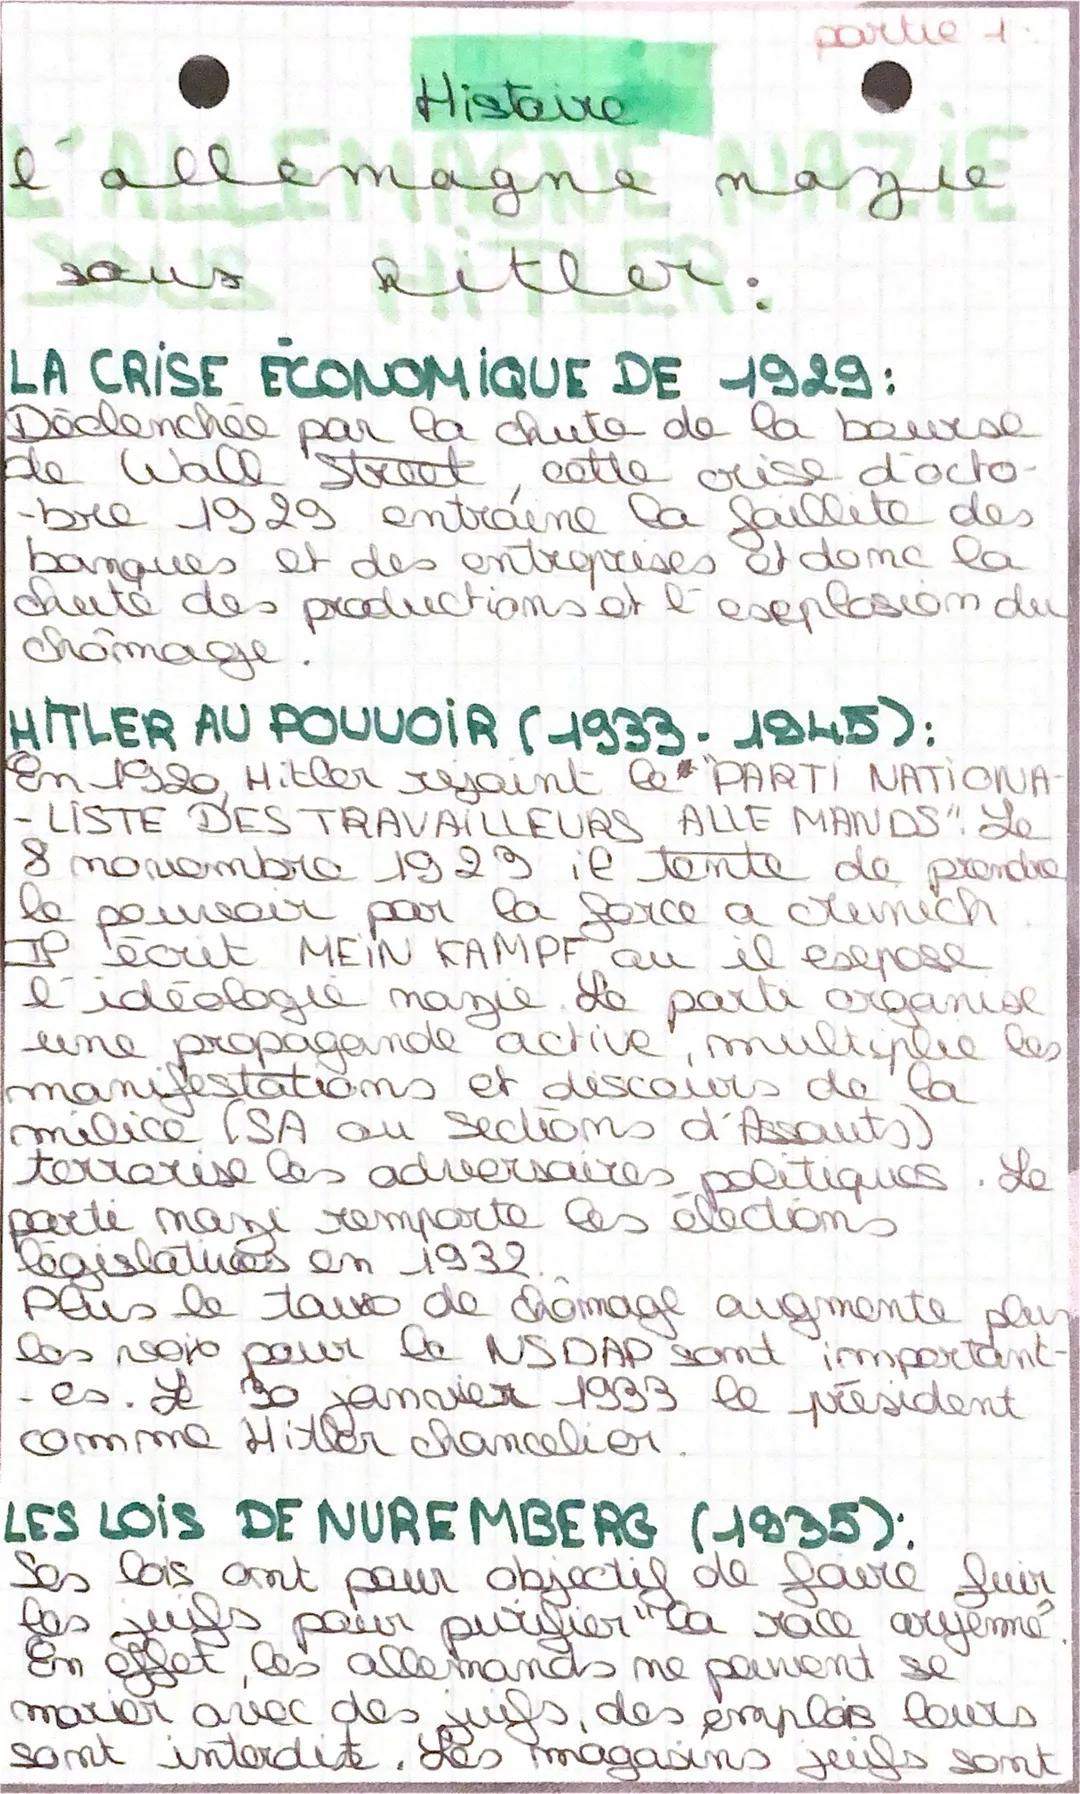 partie 1:
Histoire
L'ALLEMAGNE NAZIE
l'allemagne nazie
SOUS HITLER:
sous hitler:
LA CRISE ÉCONOMIQUE DE 1929:
Déclenchée par la chute de la bourse
de Wall Street, cette crise d'octo-
-bre 1929 entraîne la faillite des
banques et des entreprises et donc la
chute des productions et l'explosion du
chômage.
HITLER AU POUVOIR (1933-1945):
En 1920, Hitler rejoint le "PARTI NATIONA-
-LISTE DES TRAVAILLEURS ALLEMANDS". Le
8 novembre 1923 il tente de prendre
le pouvoir par la force a
Il écrit MEIN KAMPF ou il expose
l'idéologie nazie. Le parti organise
une propagande active, multiplie les
manifestations et discours de la
milice (SA ou Sections d'Assauts)
terrorise les adversaires politiques. Le
parti nazi remporte les élections
législatives en 1932.
Plus le taux de chômage augmente plus
les voix pour le NSDAP sont important-
-es. Le 30 janvier 1933 le président
comme Hitler chancelier.
LES LOIS DE NUREMBERG (1935):
Ses lois ont pour objectif de faire fuir
les juifs pour purifier "la race aryenne".
En effet, les allemands ne peuvent se
marier avec des juifs, des emplois leurs
sont interdit. Les magasins juifs sont